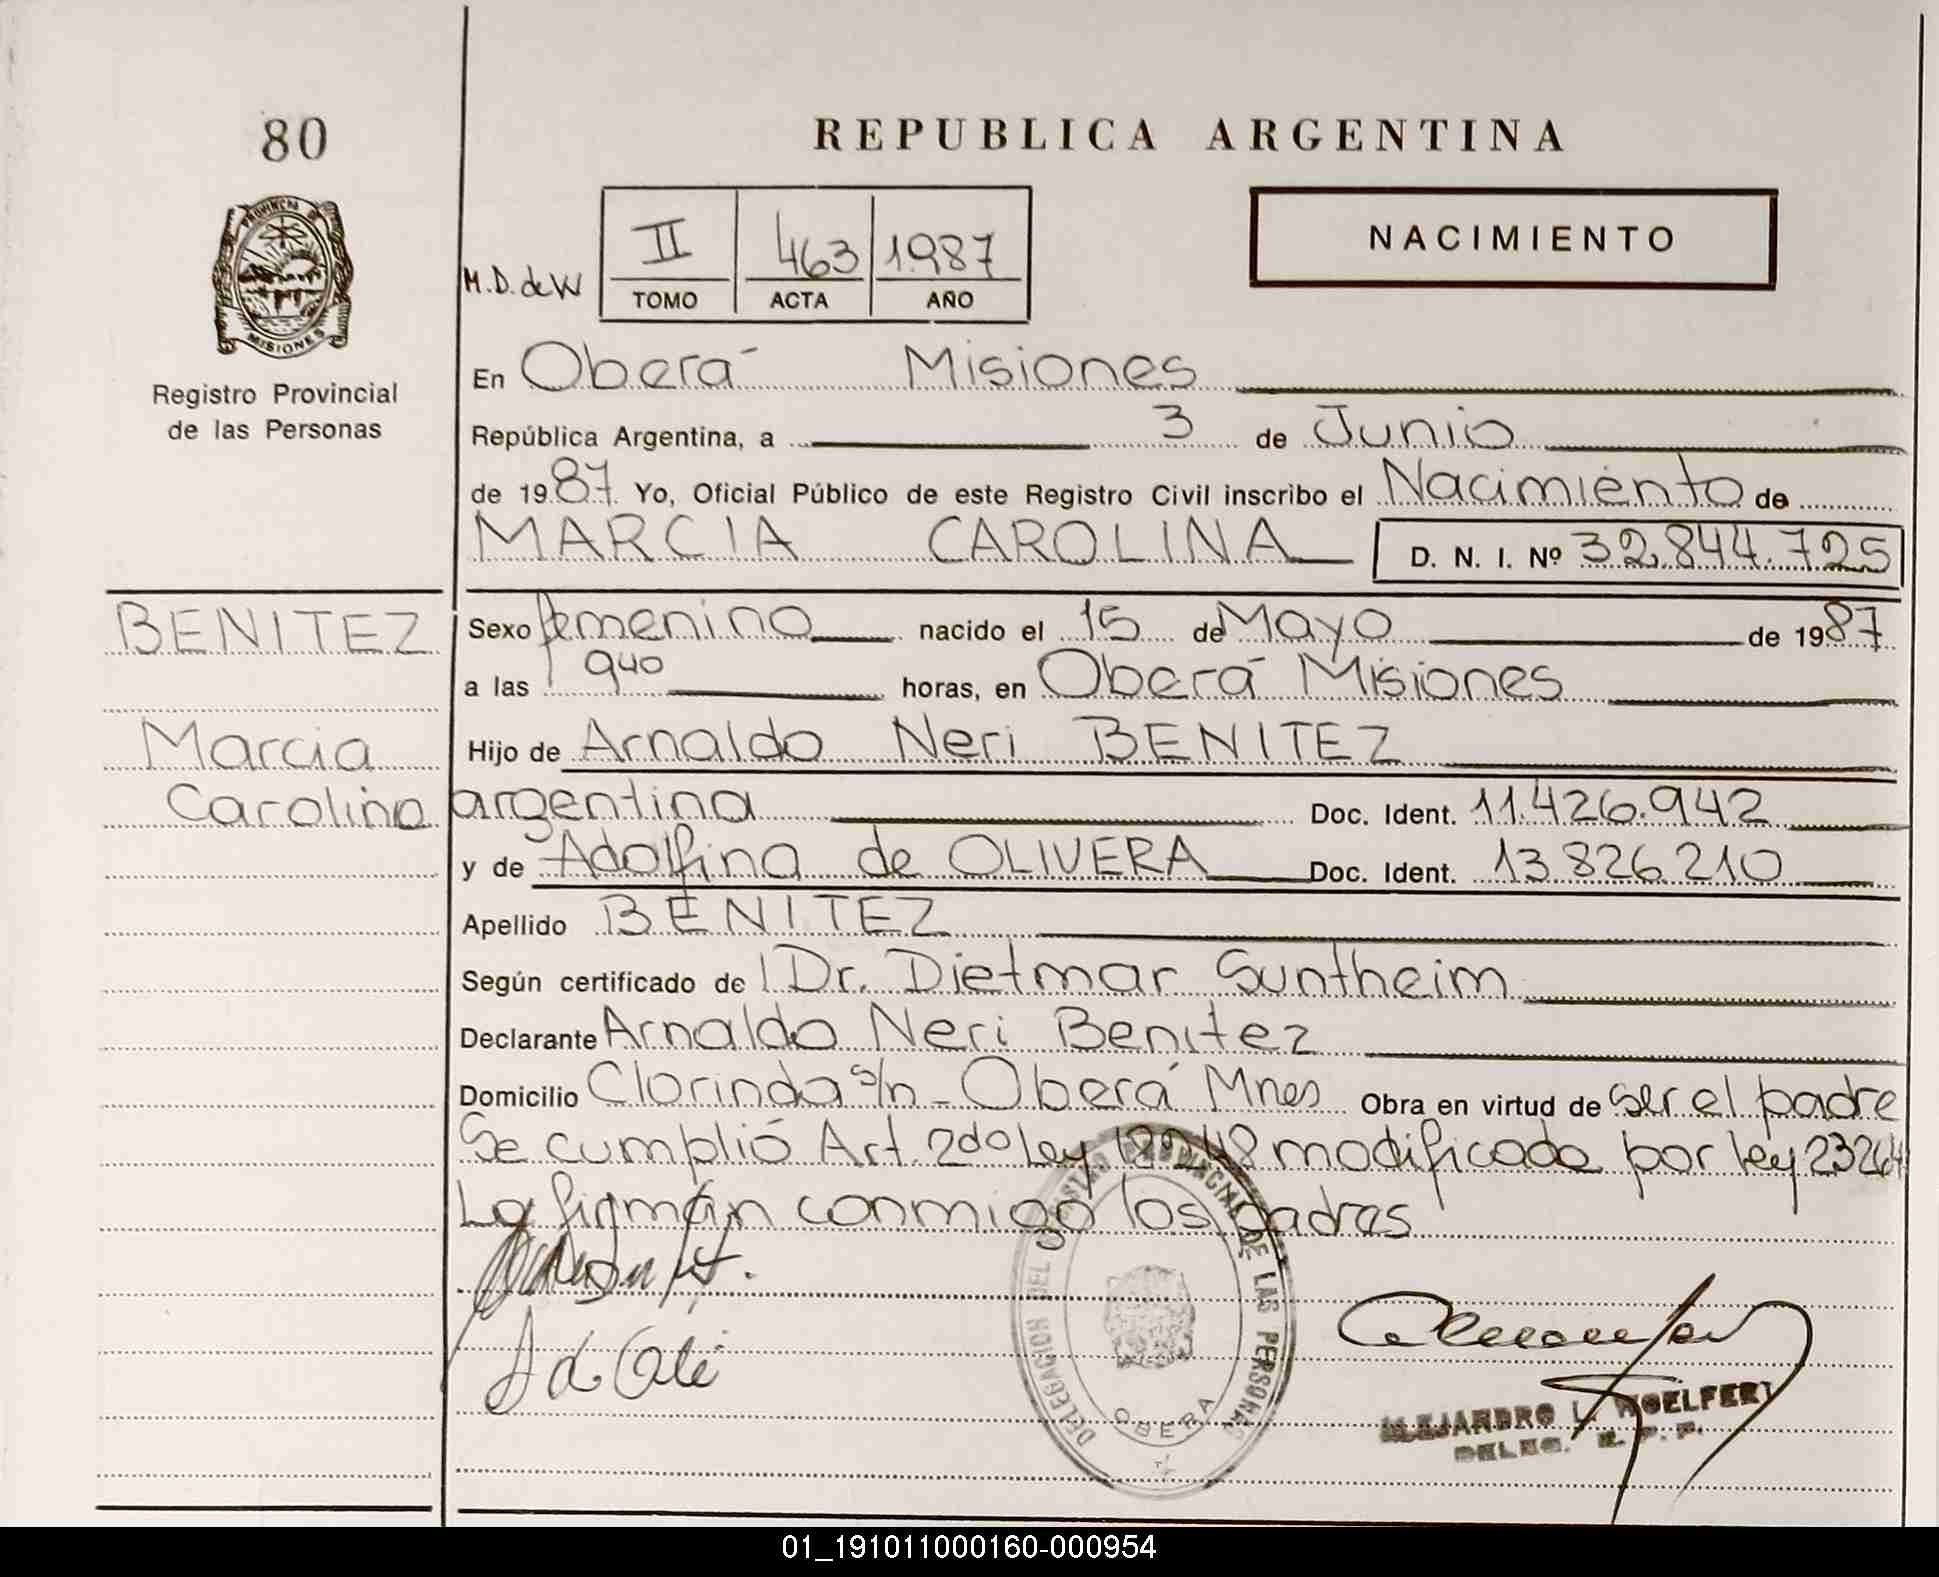 80
REPUBLICA ARGENTINA
PROVINCIA DE
MISIONES
Registro Provincial
de las Personas
M.D. de W
II 463 1987
TOMO ACTA AÑO
NACIMIENTO
En Oberá Misiones
República Argentina, a 3 de Junio
de 1987. Yo, Oficial Público de este Registro Civil inscribo el Nacimiento de
MARCIA CAROLINA D. N. I. Nº 32.844.725
BENITEZ
Marcia
Carolina
Sexo femenino nacido el 15 de Mayo de 1987
a las 940 horas, en Oberá Misiones
Hijo de Arnaldo Neri BENITEZ
argentina Doc. Ident. 11.426.942
y de Adolfina de OLIVERA Doc. Ident. 13.826.210
Apellido BENITEZ
Según certificado de Dr. Dietmar Suntheim
Declarante Arnaldo Neri Benitez
Domicilio Clorinda s/n - Oberá Mnes Obra en virtud de ser el padre
Se cumplió Art. 2do ley 18248 modificado por ley 23264
La firman conmigo los padres
DELEGACION DEL REGISTRO PROVINCIAL DE LAS PERSONAS
OBERA
ALEJANDRO L. WOELFERT
DELEG. R. P. P.
01_191011000160-000954